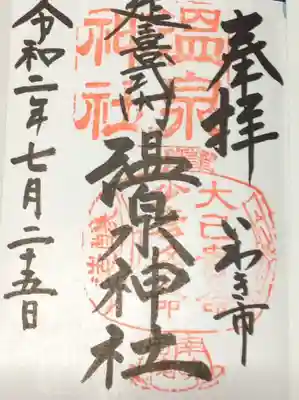 奉拝
いわき市
延喜式内
温泉神社
令和二年七月二十五日
温泉
神社